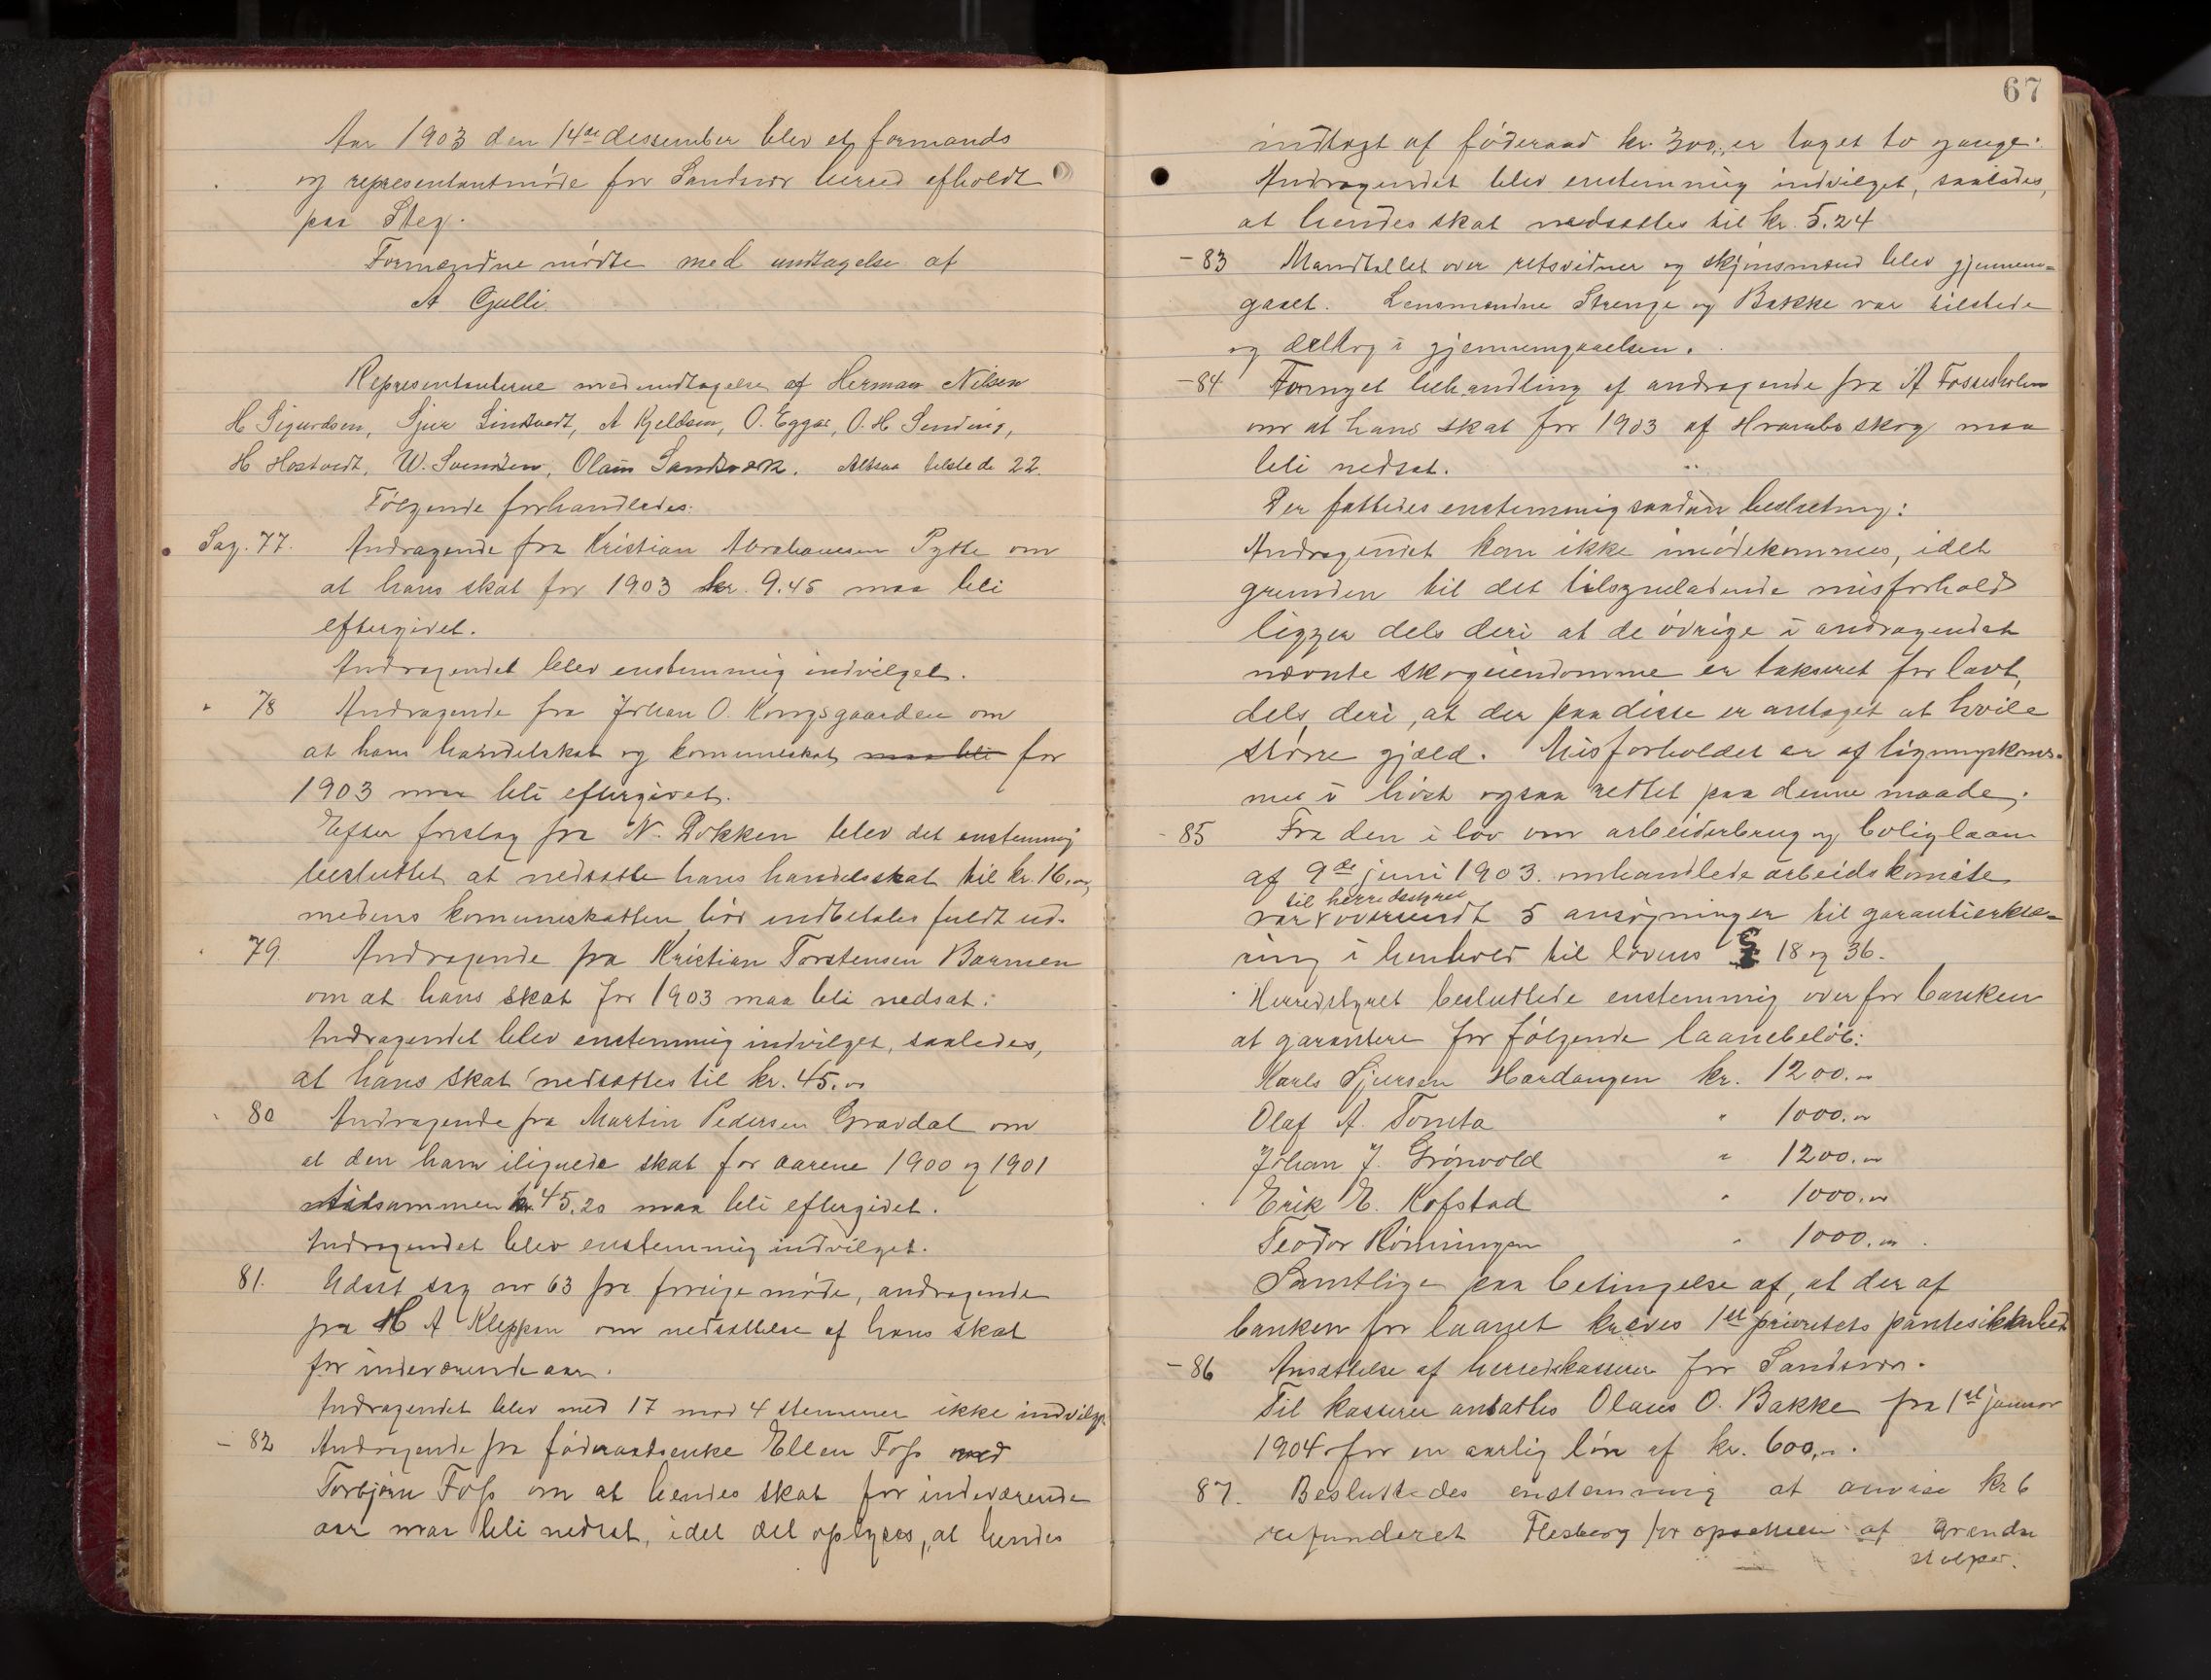 Aar 1903 den 14de dessember blev et formands
og representantmøde for Sandsvær herred afholdt
paa Steg.
Formændne mødte med undtagelse af
A Gulli.
Representanterne med undtagelse af Herman Nilsen
H Sigurdsen, Sjur Lindtvedt, A Kjeldsen, O. Eggar, O. H Sending,
H Hostvedt, W. Svendsen, Olaus Sandsværk. Altsaa tilstede 22.
Følgende forhandledes:
Sag. 77. Andragende fra Kristian Abrahamsen Pytte om
at hans skat for 1903 kr. 9.45 maa bli
eftergivet.
Andragendet blev enstemmig indvilget.
78 Andragende fra Johan O. Kongsgaarden om
at hans handelskat og komuneskat maa bli for
1903 maa bli eftergivet.
Efter forslag fra N. Dokken blev det enstemmig
besluttet at nedsætte hans handelsskat til kr. 16.00,
medens komuneskatten bør indbetales fuldt ud.
79. Andragende fra Kristian Torstensen Barmen
om at hans skat for 1903 maa bli nedsat.
Andragendet blev enstemmig indvilget, saaledes,
at hans skat nedsættes til kr. 45.00
80 Andragende fra Martin Pedersen Gravdal om
at den ham ilignede skat for aarene 1900 og 1901
tilsammen kr. 45.20 maa bli eftergivet.
Andragendet blev enstemmig indvilget.
81. Udsat sag nr 63 fra forrige møde, andragende
fra H A Kleppan om nedsættelse af hans skat
for indeværende aar.
Andragendet blev med 17 mod 4 stemmer ikke indvilget.
- 82 Andragende fra føderaadsenke Ellen Foss ved
Torbjørn Foss om at hendes skat for indeværende
aar maa bli nedsat, idet det oplyses, at hendes
67
indtægt af føderaad kr. 300,, er taget to gange.
Andragendet blev enstemmig indvilget, saaledes,
at hendes skat nedsættes til kr. 5.24
- 83 Mandtallet over retsvidner og skjønsmænd blev gjennem-
gaaet. Lensmændne Strenge og Bakke var tilstede
og deltog i gjennemgaaelsen.
- 84 Fornyet behandling af andragende fra A Fossesholm
om at hans skat for 1903 af Hvambo skog maa
bli nedsat.
Der fattedes enstemmig saadan beslutning:
Andragendet kan ikke imødekommes, idet
grunden til det tilsyneladende misforhold
ligger dels deri at de øvrige i andragendet
nævnte skogeiendomme er takseret for lavt,
dels deri, at der paa disse er antaget at hvile
større gjæld. Misforholdet er af ligningskoms-
nen i høst ogsaa rettet paa denne maade.
- 85 Fra den i lov om arbeiderbrug og boliglaan
af 9de juni 1903. omhandlede arbeidskomite
til herredsstyret
var oversendt 5 ansøgninger til garantierklæ-
ring i henhold til lovens § 18 og 36.
Herredstyret besluttede enstemmig overfor banken
at garantere for følgende laanebeløb:
Karls Sjursen Hardangen kr. 1200.00
Olaf A. Tomta " 1000.00
Johan J. Grønvold " 1200.00
Erik E. Kofstad " 1000.00
Teodor Rønningen " 1000.00
Samtlige paa betingelse af, at der af
banken for laanet kræves 1ste prioritets pantesikkerhed
- 86 Ansættelse af herredskasserer for Sandsvær.
Til kasserer ansattes Olaus O. Bakke fra 1ste januar
1904 for en aarlig løn af kr. 600,00.
87. Besluttedes enstemmig at anvise kr 6
refunderet Flesberg for opsættelse af grændse
stolper.